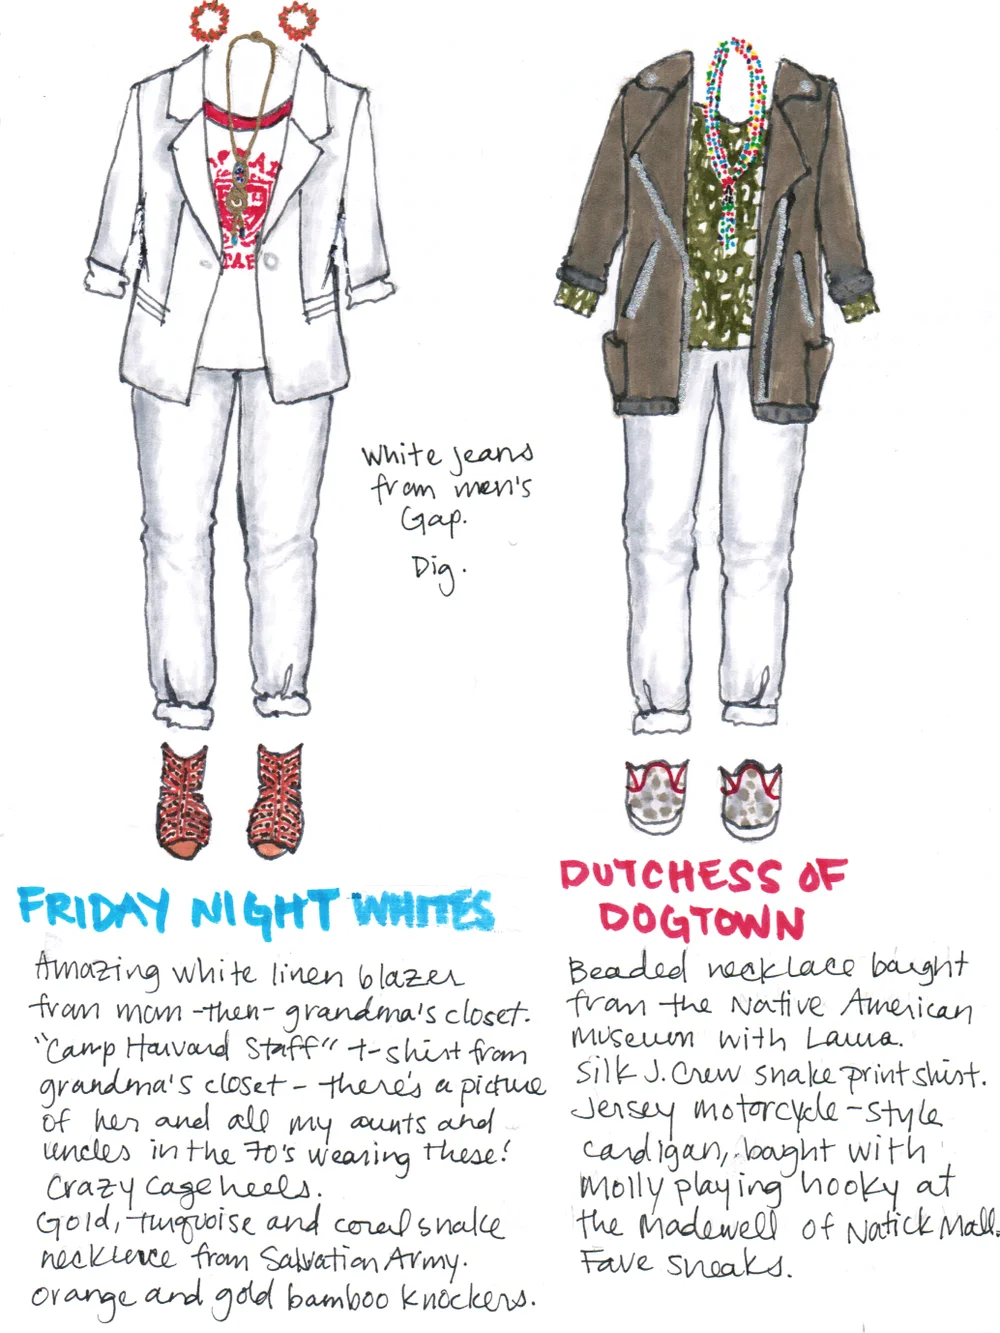 White jeans
from men's
Gap.
Dig.
FRIDAY NIGHT WHITES
Amazing white linen blazer
from mom-then-grandma's closet.
"Camp Harvard Staff" t-shirt from
grandma's closet - there's a picture
of her and all my aunts and
uncles in the 70's wearing these!
Crazy cage heels.
Gold, turquoise and coral snake
necklace from Salvation Army.
Orange and gold bamboo knockers.
DUTCHESS OF
DOGTOWN
Beaded necklace bought
from the Native American
Museum with Laura.
Silk J.Crew snake print shirt.
Jersey motorcycle-style
cardigan, bought with
Molly playing hooky at
the Madewell of Natick Mall.
Fave sneaks.